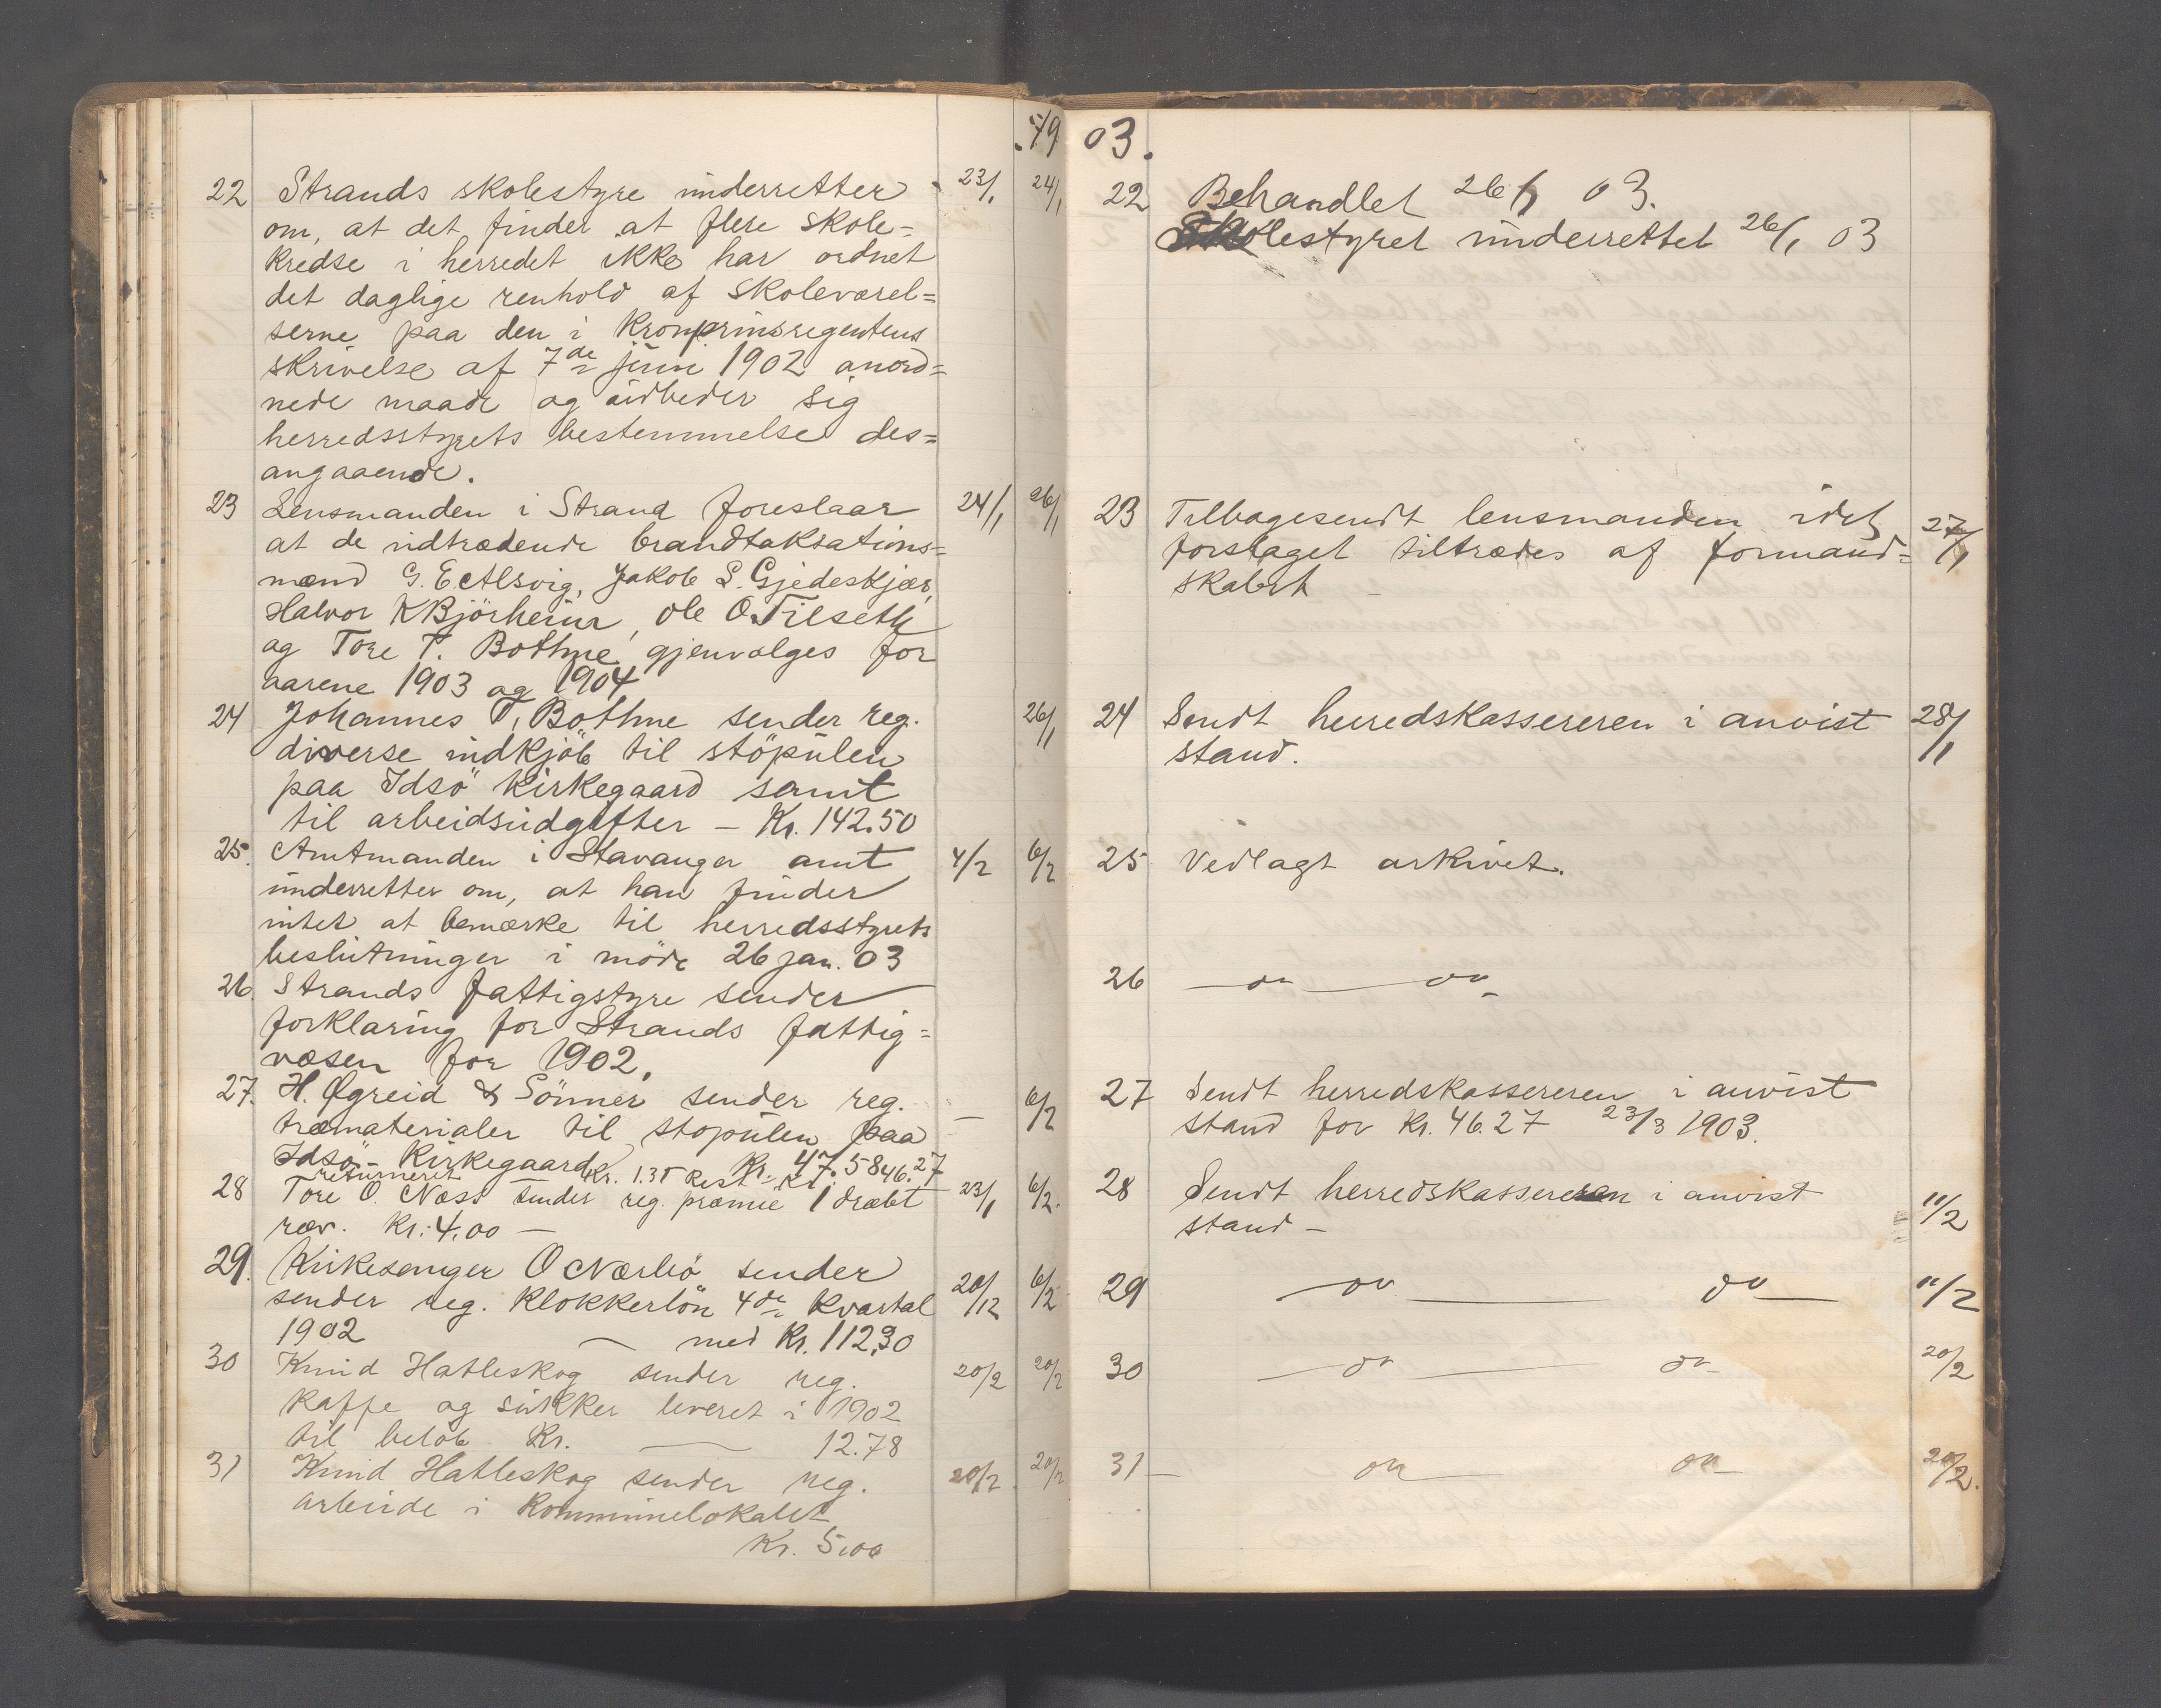 19 03.
22 Strands skolestyre underretter 23/1 24/1
om, at det finder at flere skole=
kredse i herredet ikke har ordnet
det daglige renhold af skoleværel=
serne paa den i Kronprinsregentens
skrivelse af 7de juni 1902 anord=
nede maade og udbeder sig
herredsstyrets bestemmelse des=
angaaende.
23 Lensmanden i Strand foreslaar 24/1 26/1
at de udtrædende brandtaksations=
mænd G. E. Alsvig, Jakob S. Gjedeskjær,
Halvor K Bjørheim, Ole O. Tilseth
og Tore T. Bothne gjenvælges for
aarene 1903 og 1904
24 Johannes T. Bothne sender reg. 26/1
diverse indkjöb til stöpulen
paa Idsö Kirkegaard samt
til arbeidsudgifter – Kr. 142.50
25. Amtmanden i Stavanger amt 4/2 6/2
underretter om, at han finder
intet at bemærke til herredsstyrets
beslutninger i möde 26 jan. 03
26. Strands fattigstyre sender
forklaring for Strands fattig=
væsen for 1902.
27. H. Øgreid & Sönner sender reg. — 6/2
træmaterialer til stopulen paa
Idsö Kirkegaard Kr. 47.58 46.27
returneret Kr. 1.35 Rest Kr.
28 Tore O. Næss sender reg. præmie 1 dræbt 23/1 6/2.
ræv. Kr: 4.00 —
29. Kirkesanger O Nærbö sender 20/12 6/2
sender reg. Klokkerlön 4de Kvartal
1902 — med Kr. 112,30
30 Knud Hatleskog sender reg. 20/2 20/2
Kaffe og sukker leveret i 1902
til belöb Kr. — 12.78
31 Knud Hatleskog sender reg. 20/2 20/2
arbeide i Kommunelokalet
Kr. 5.00
22 Behandlet 26/1 03.
Skolestyret underrettet 26/1 03
23 Tilbagesendt lensmanden idet 27/1
forslaget tiltrædes af formand=
skabet
24 Sendt herredskassereren i anvist 28/1
stand.
25 Vedlagt arkivet.
26 — do — do —
27 Sendt herredskassereren i anvist
stand for Kr. 46.27 23/3 1903.
28 Sendt herredskassereren i anvist
stand – 11/2
29 — do — do — 11/2
30 — do — do — 20/2
31 — do — do — 20/2.